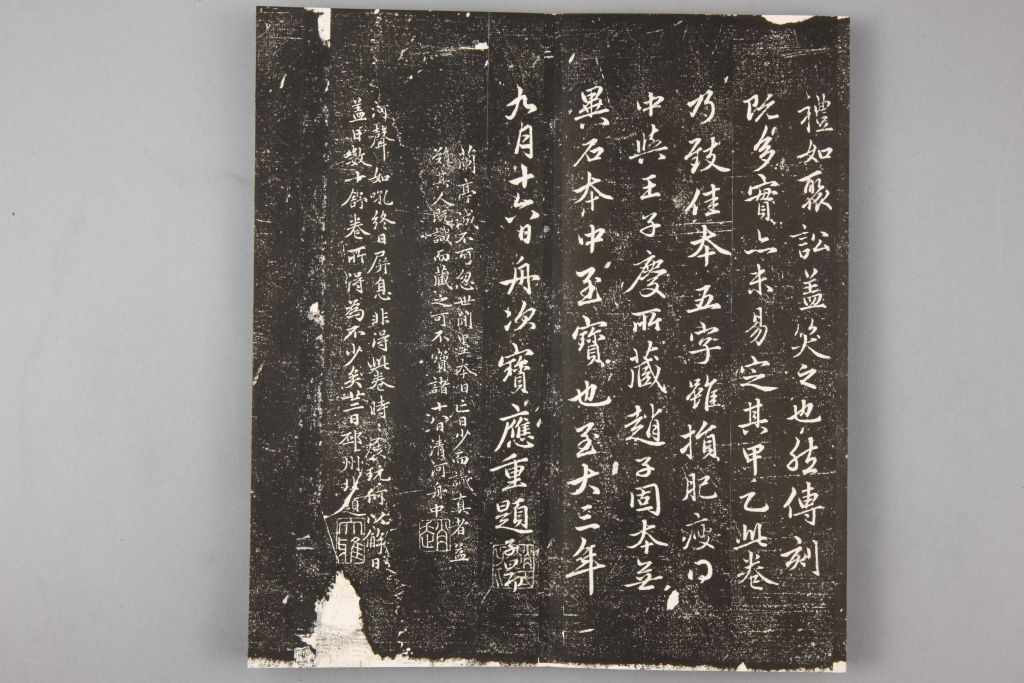 禮如聚訟蓋笑之也然傳刻
既多實亦未易定其甲乙此卷
乃致佳本五字雖損肥瘦得
中與王子慶所藏趙子固本無
異石本中至寶也至大三年
九月十六日舟次寶應重題子昂
蘭亭誠不可忽世間墨本日亡日少而識真者蓋
難其人既識而藏之可不寶諸十八日清河舟中
河聲如吼終日屏息非得此卷時時展玩何以解日
蓋日數十舒卷所得為不少矣廿二日邳州北題